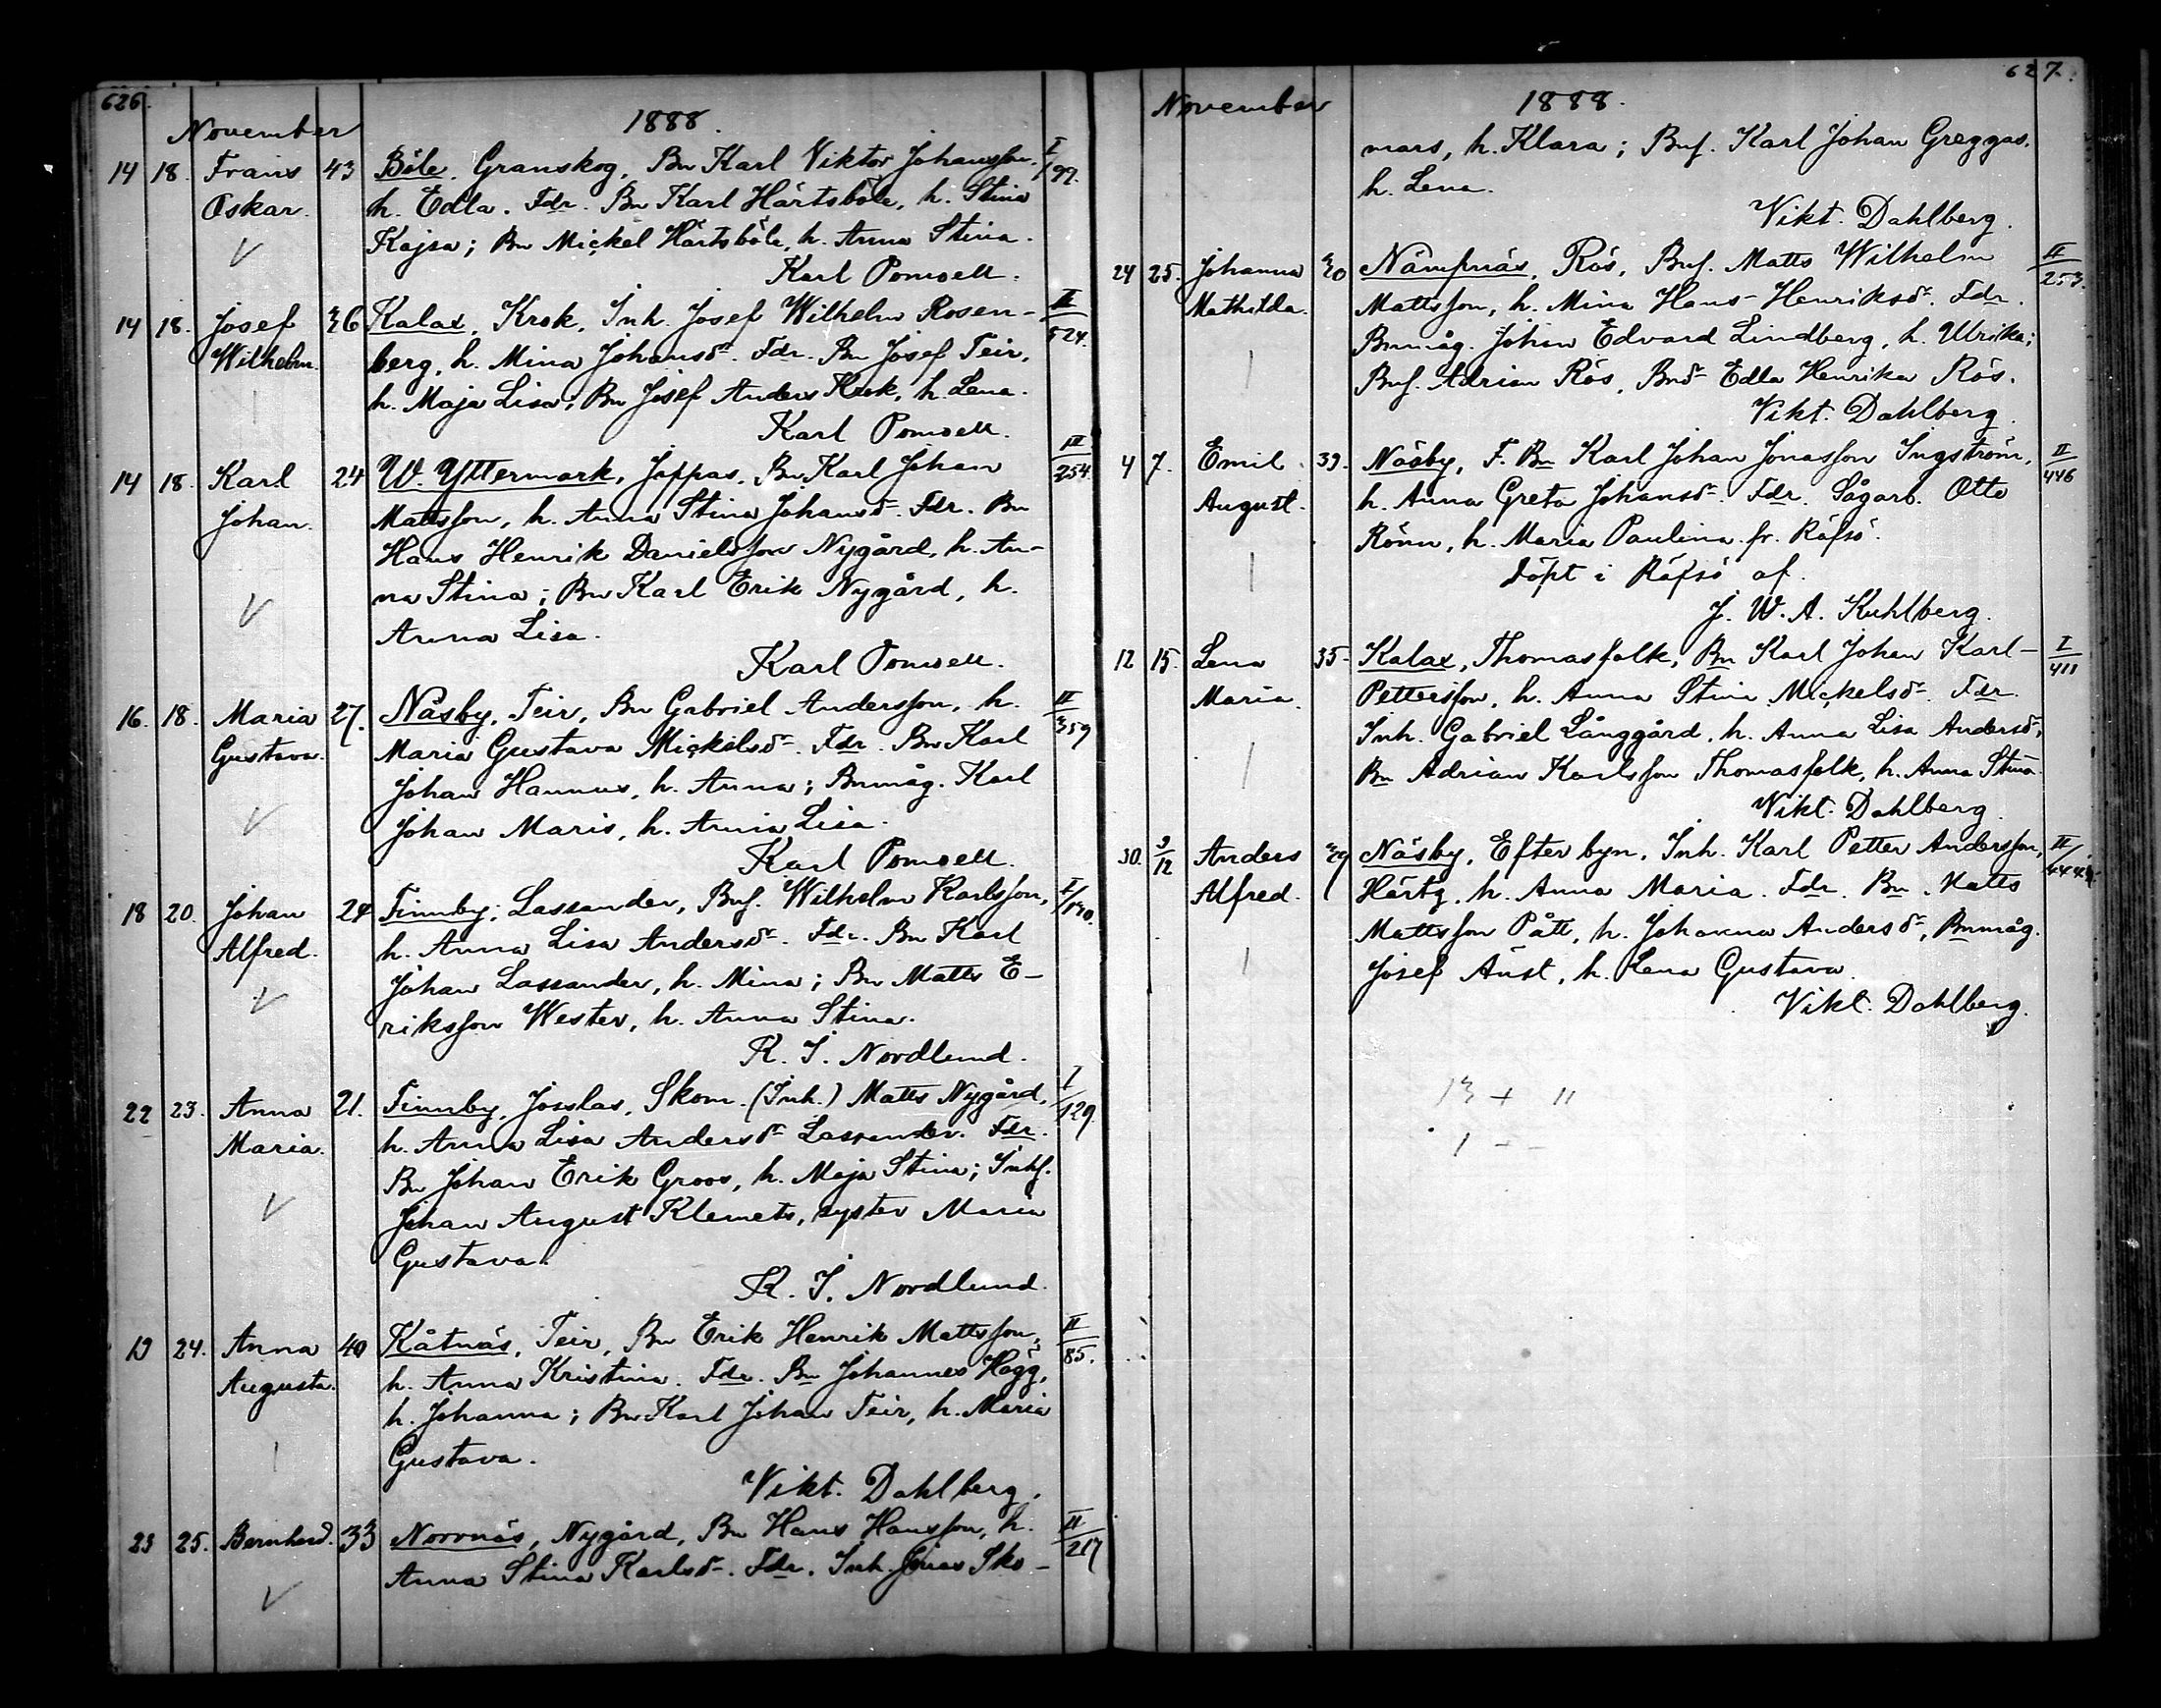 626.
November 1888.
14 18. Frans 43 Böle, Granskog, Bn Karl Viktor Johansson, I/99.
Oskar. h. Edla. Fdr. Bn Karl Härtsböle, h. Stina
Kajsa; Bn Mickel Härtsböle, h. Anna Stina.
Karl Ponsell.
14 18. Josef 36 Kalax, Krok, Inh. Josef Wilhelm Rosen- II/524.
Wilhelm. berg, h. Mina Johansdr. Fdr. Bn Josef Teir,
h. Maja Lisa; Bn Josef Anders Krok, h. Lena.
Karl Ponsell.
14 18. Karl 24 W. Yttermark, Jappas, Bn Karl Johan II/254
Johan. Mattsson, h. Anna Stina Johansdr. Fdr. Bn
Hans Henrik Danielsson Nygård, h. An-
na Stina; Bn Karl Erik Nygård, h.
Anna Lisa.
Karl Ponsell.
16. 18. Maria 27. Näsby, Teir, Bn Gabriel Andersson, h. II/359
Gustava. Maria Gustava Mickelsdr. Fdr. Bn Karl
Johan Hannus, h. Anna; Bnmåg. Karl
Johan Maris, h. Anna Lisa.
Karl Ponsell.
18 20. Johan 24 Finnby, Lassander, Bnf. Wilhelm Karlsson, I/130.
Alfred. h. Anna Lisa Andersdr. Fdr. Bn Karl
Johan Lassander, h. Mina; Bn Matts E-
riksson Wester, h. Anna Stina.
K. I. Nordlund.
22 23. Anna 21. Finnby, Josslas, Skom. (Inh.) Matts Nygård, I/129.
Maria. h. Anna Lisa Andersdr Lassander. Fdr.
Bn Johan Erik Groos, h. Maja Stina; Inhf.
Johan August Klemets, syster Maria
Gustava.
K. I. Nordlund.
19 24. Anna 40 Kåtnäs, Teir, Bn Erik Henrik Mattsson, II/85.
Augusta. h. Anna Kristina. Fdr. Bn Johannes Hägg,
h. Johanna; Bn Karl Johan Teir, h. Maria
Gustava.
Vikt. Dahlberg.
23 25. Bernhard. 33 Norrnäs, Nygård, Bn Hans Hansson, h. II/217
Anna Stina Karlsdr. Fdr. Inh. Jonas Sko-
627.
November 1888.
mars, h. Klara; Bnf. Karl Johan Greggas.
h. Lena.
Vikt. Dahlberg.
24 25. Johanna 20 Nämpnäs, Rös, Bnf. Matts Wilhelm II/253.
Mathilda. Mattsson, h. Mina Hans-Henriksdr. Fdr.
Bnmåg. Johan Edvard Lindberg, h. Ulrika;
Bnf. Adrian Rös, Bndr Edla Henrika Rös.
Vikt. Dahlberg.
4 7. Emil 39. Näsby, F. Bn Karl Johan Jonasson Ingström, II/446
August. h. Anna Greta Johansdr. Fdr. Sågarb. Otto
Rönn, h. Maria Paulina fr. Räfsö.
Döpt i Räfsö af.
J. W. A. Kuhlberg.
12 15. Lena 35- Kalax, Thomasfolk, Bn Karl Johan Karl- I/411
Maria. Pettersson, h. Anna Stina Mickelsdr. Fdr.
Inh. Gabriel Långgård, h. Anna Lisa Andersdr,
Bn Adrian Karlsson Thomasfolk, h. Anna Stina.
Vikt. Dahlberg.
30. 3/12 Anders 29 Näsby, Efter byn, Inh. Karl Petter Andersson, II
Alfred. Härtz, h. Anna Maria. Fdr. Bn. Matts
Mattsson Pått, h. Johanna Andersdr, Bnmåg.
Josef Aúst, h. Lena Gustava.
Vikt. Dahlberg.
13 + 11
1 - -